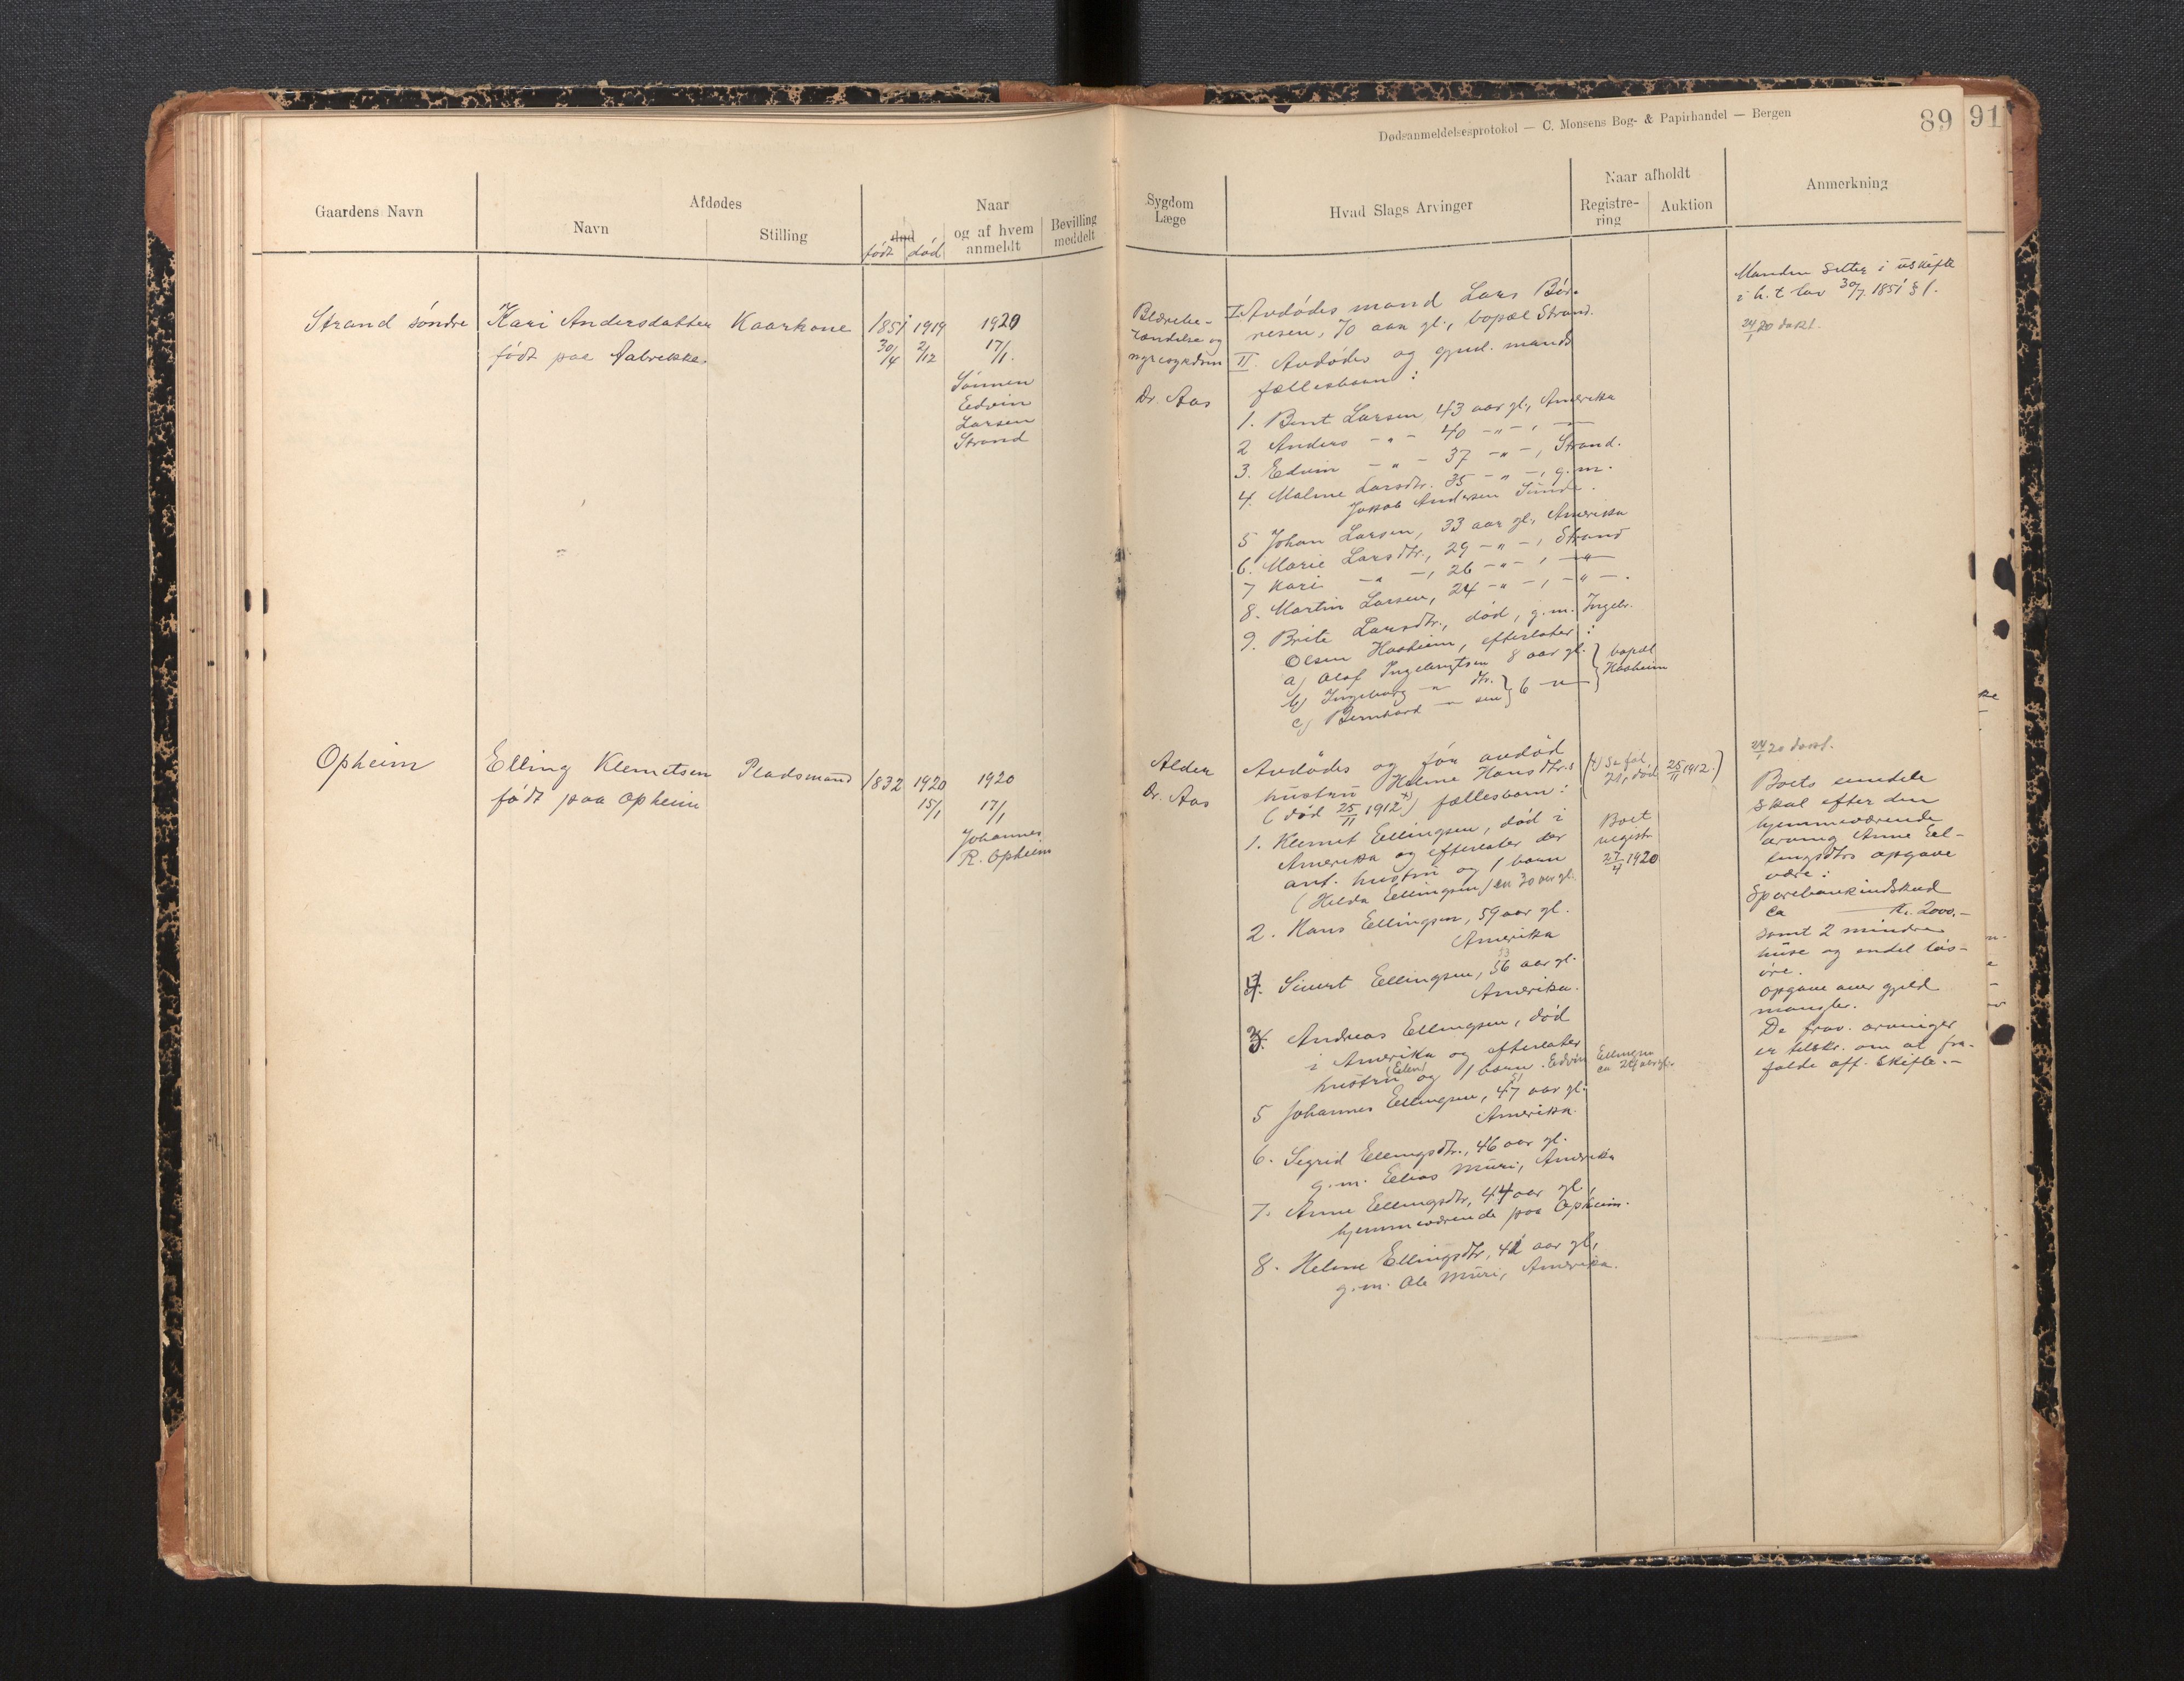 Dødsanmeldelsesprotokol — C. Monsens Bog- & Papirhandel — Bergen
89
91
Gaardens Navn
Afdødes
Navn
Stilling
død
født
død
Naar
og af hvem
anmeldt
Bevilling
meddelt
Sygdom
Læge
Hvad Slags Arvinger
Naar afholdt
Registre-
ring
Auktion
Anmerkning
Strand søndre
Kari Andersdatter
født paa Fabrekke.
Kaarkone
1851
30/4
1919
2/12
1920
17/1.
Sønnen
Edvin
Larsen
Strand
Blærebe-
tændelse og
nyresygdom
Dr. Aas
I. Avdødes mand Lars Bør-
resen, 70 aar gl., bopæl Strand.
II. Avdødes og gjenl. mands
fællesbarn:
1. Bent Larsen 43 aar gl., Amerika
2 Anders - " - 40 - " - , —
3. Edvin - " - 37 - " - , Strand.
4. Maline Larsdtr. 35 - " - , g. m.
Jakob Andersen Sunde.
5 Johan Larsen, 33 aar gl., Amerika
6. Marie Larsdtr., 29 - " - , Strand
7 Kari - " - , 26 - " - , - " -
8. Martin Larsen, 24 - " - , - " - .
9. Brite Larsdtr., død, g. m. Ingebr.
Olsen Haaheim, efterlater:
a) Olaf Ingebrigtsen 8 aar gl.
b) Ingeborg - " - dtr.
c) Bernhard - " - sen } 6 - " -
} bopæl
Haaheim
Manden sitter i uskifte
i h. t. lov 30/7. 1851 § 1.
24/1 20 dokt.
Opheim
Elling Klemetsen
født paa Opheim
Pladsmand
1832
1920
15/1
1920
17/1
Johannes
R. Opheim
Alder
Dr. Aas
Avdødes og før avdød
hustru Heline Hansdtr.s
(død 25/11 1912 x)) fællesbarn:
1. Klemet Ellingsen, død i
Amerika og efterlater der
ant. hustru og 1 barn
(Hilda Ellingsen) en 30 aar gl.
2. Hans Ellingsen, 59 aar gl.
Amerika
4. Sivert Ellingsen, 56 aar gl.
53
Amerika.
3. Andreas Ellingsen, død
i Amerika og efterlater
hustru (Ellen) og 1 barn. Edvin Ellingsen
ca 24 aar gl.
5 Johannes Ellingsen, 47 aar gl.
51
Amerika.
6. Sigrid Ellingsdtr., 46 aar gl.
g. m. Elias Muri, Amerika
7. Anne Ellingsdtr, 44 aar gl.
hjemmeværende paa Opheim.
8. Heline Ellingsdtr, 42 aar gl.,
g. m. Ole Muri, Amerika.
(x) Se fol
21, død 25/11 1912.)
Boet
registr.
27/4 1920
24/1 20 dokt.
Boets eiendele
skal efter den
hjemmeværende
arving Anne El-
lingsdtrs opgave
være:
Sparebankindskud
ca — Kr. 2000.-
samt 2 mindre
huse og endel løs-
øre.
Opgave over gjeld
mangler.
De frav. arvinger
er tilskr. om at fra-
falde off. skifte.-